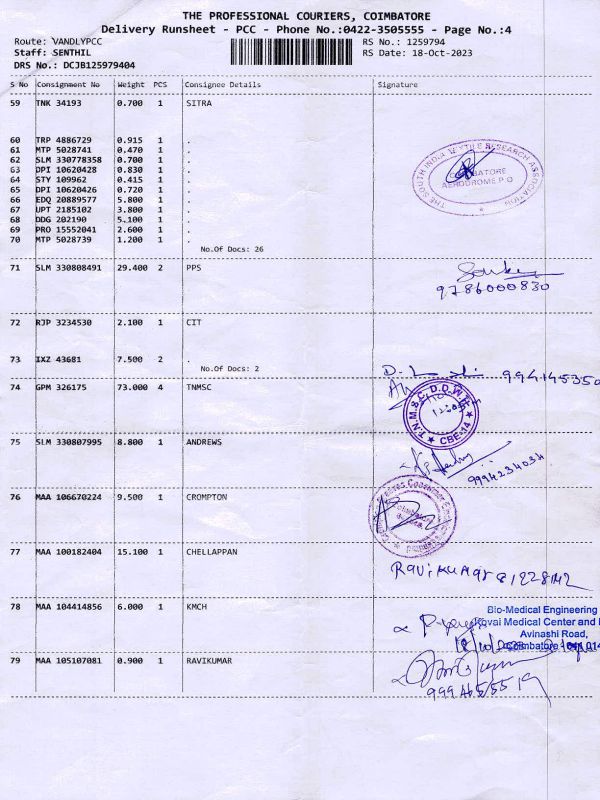 THE PROFESSIONAL COURIERS, COIMBATORE
Delivery Runsheet - PCC - Phone No.:0422-3505555 - Page No.:4
Route: VANDLYPCC RS No.: 1259794
Staff: SENTHIL RS Date: 18-Oct-2023
DRS No.: DCJB125979404
S No Consignment No Weight PCS Consignee Details Signature
59 TNK 34193 0.700 1 SITRA
60 TRP 4886729 0.915 1 .
61 MTP 5028741 0.470 1 .
62 SLM 330778358 0.700 1 .
63 DPI 10620428 0.830 1 .
64 STY 109962 0.415 1 .
65 DPI 10620426 0.720 1 .
66 EDQ 20889577 5.800 1 .
67 UPT 2185102 3.800 1 .
68 DDG 202190 5.100 1 .
69 PRO 15552041 2.600 1 .
70 MTP 5028739 1.200 1 .
No.Of Docs: 26
THE SOUTH INDIA TEXTILE RESEARCH ASSOCIATION
COIMBATORE
AERODROME P.O
71 SLM 330808491 29.400 2 PPS
9786000830
72 RJP 3234530 2.100 1 CIT
73 IXZ 43681 7.500 2 .
No.Of Docs: 2
994145350
74 GPM 326175 73.000 4 TNMSC
T.N.M.S.C. D.D.W.H
CBE-14
75 SLM 330807995 8.800 1 ANDREWS
9994234034
76 MAA 106670224 9.500 1 CROMPTON
77 MAA 100182404 15.100 1 CHELLAPPAN
Ravikumar
78 MAA 104414856 6.000 1 KMCH
Bio-Medical Engineering
Kovai Medical Center and
Avinashi Road,
Coimbatore
79 MAA 105107081 0.900 1 RAVIKUMAR